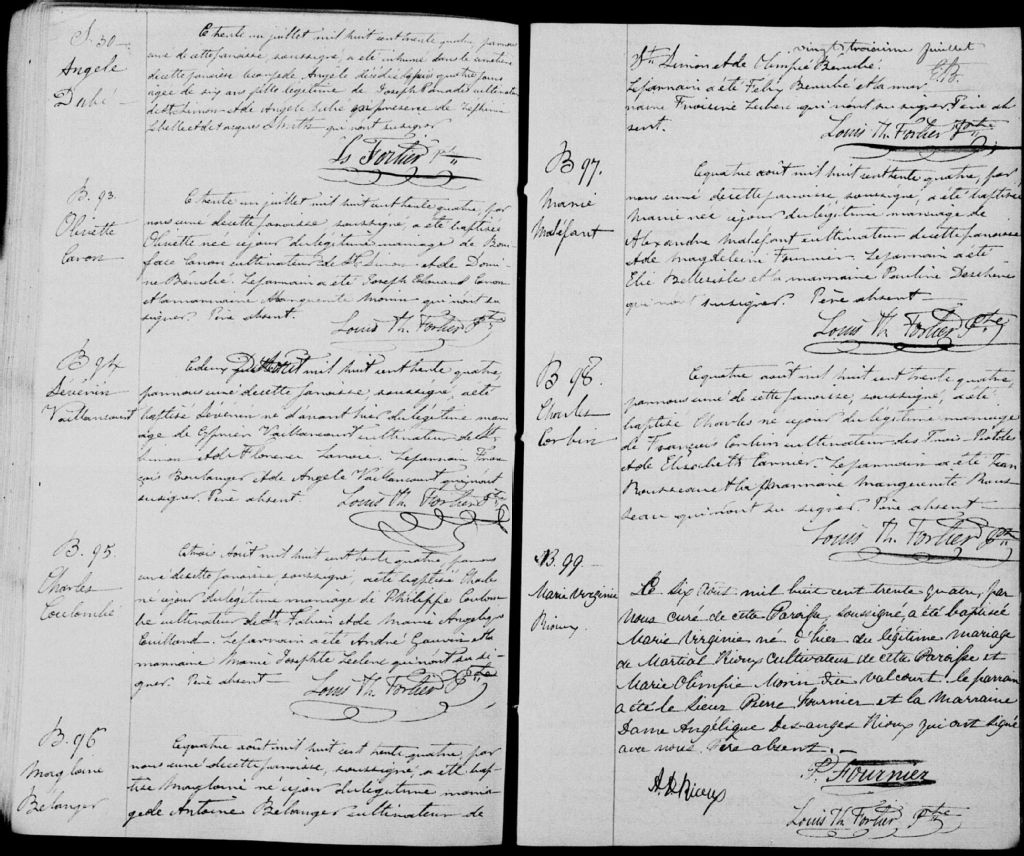 S. 30
Angèle
Dubé
Le trente un juillet mil huit cent trente quatre, par nous
curé de cette paroisse soussigné, a été inhumé dans le cimetière
de cette paroisse le corps de Angèle décédée depuis quatre jours
agée de six ans fille légitime de Joseph cultivateur
de St. Simon et de Angèle Dubé en présence de Zéphirin
et de Jacques qui n'ont su signer
Ls Fortier Ptre
B. 93.
Olivette
Caron
Le trente un juillet mil huit cent trente quatre, par
nous curé de cette paroisse, soussigné, a été baptisée
Olivette née ce jour du légitime mariage de Boni-
face Caron cultivateur de St Simon et de Domi-
ne Bérubé. Le parrain a été Joseph Edouard Caron
et la marraine Marguerite Morin qui n'ont su
signer. Père absent.
Louis Th. Fortier Ptre
B 94
Sévérin
Vaillancourt
Le deux août mil huit cent trente quatre,
par nous curé de cette paroisse, soussigné, a été
baptisé Séverin né d'avant hier du légitime mari-
age de Cyprien Vaillancourt cultivateur de St.
Simon et de Florence Lavoie. Le parrain Fran-
çois Boulanger et de Angèle Vaillancourt qui n'ont
su signer. Père absent.
Louis Th. Fortier Ptre
B. 95.
Charles
Coulombe
Le trois Août mil huit cent trente quatre par nous
curé de cette paroisse, soussigné, a été baptisé Charles
né ce jour du légitime mariage de Philippe Coulom-
be cultivateur de St. Fabien et de Marie Angélique
Le parrain a été André Gauvin et la
marraine Marie Josephte Leclerc qui n'ont su si-
gner. Père absent
Louis Th. Fortier Ptre
B. 96
Magloire
Bélanger
Le quatre août mil huit cent trente quatre, par
nous curé de cette paroisse, soussigné, a été bap-
tisé Magloire né ce jour du légitime maria-
ge de Antoine Bélanger cultivateur de
vingt troisième juillet
St. Simon et de Olimpie Bérubé.
Le parrain a été Félix Bérubé et la mar-
raine qui n'ont su signer. Père ab-
sent.
Louis Th. Fortier Ptre
B 97.
Marie
Maléfant
Le quatre août mil huit cent trente quatre, par
nous curé de cette paroisse, soussigné, a été baptisée
Marie née ce jour du légitime mariage de
Alexandre Maléfant cultivateur de cette paroisse
et de Magdeleine Fournier. Le parrain a été
Elie Bellesisle et la marraine Pauline Deschene
qui n'ont su signer. Père absent
Louis Th. Fortier Ptre
B 98.
Charles
Corbin
Le quatre août mil huit cent trente quatre,
par nous curé de cette paroisse, soussigné, a été
baptisé Charles né ce jour du légitime mariage
de François Corbin cultivateur des Trois-Pistoles
et de Elisabeth Le parrain a été Jean
Rousseau et la marraine Marguerite Rous-
seau qui n'ont su signer Père absent
Louis Th. Fortier Ptre
B. 99
Marie Virginie
Rioux
Le six Août mil huit cent trente quatre, par
nous curé de cette Paroisse soussigné, a été baptisée
Marie Virginie né d'hier du légitime mariage
de Martial Rioux cultivateur de cette Paroisse et
Marie Olimpie Morin dite Valcourt. le parrain
a été le Sieur Pierre Fournier et la Marraine
Dame Angélique Desanges Rioux qui ont signé
avec nous. Père absent.
P. Fournier
A D Rioux
Louis Th. Fortier Ptre